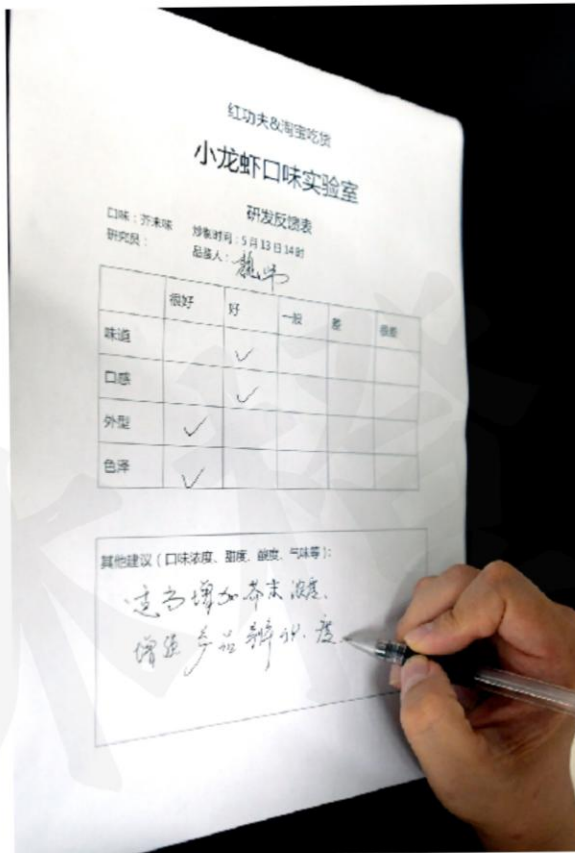 红功夫&淘宝吃货
小龙虾口味实验室
研发反馈表
口味：芥末味 炒制时间：5月13日14时
研究员： 品鉴人：魏
很好 好 一般 差 很差
味道 ✓
口感 ✓
外型 ✓
色泽 ✓
其他建议（口味浓度、甜度、酸度、气味等）：
适当增加芥末浓度、
增强产品辨识度